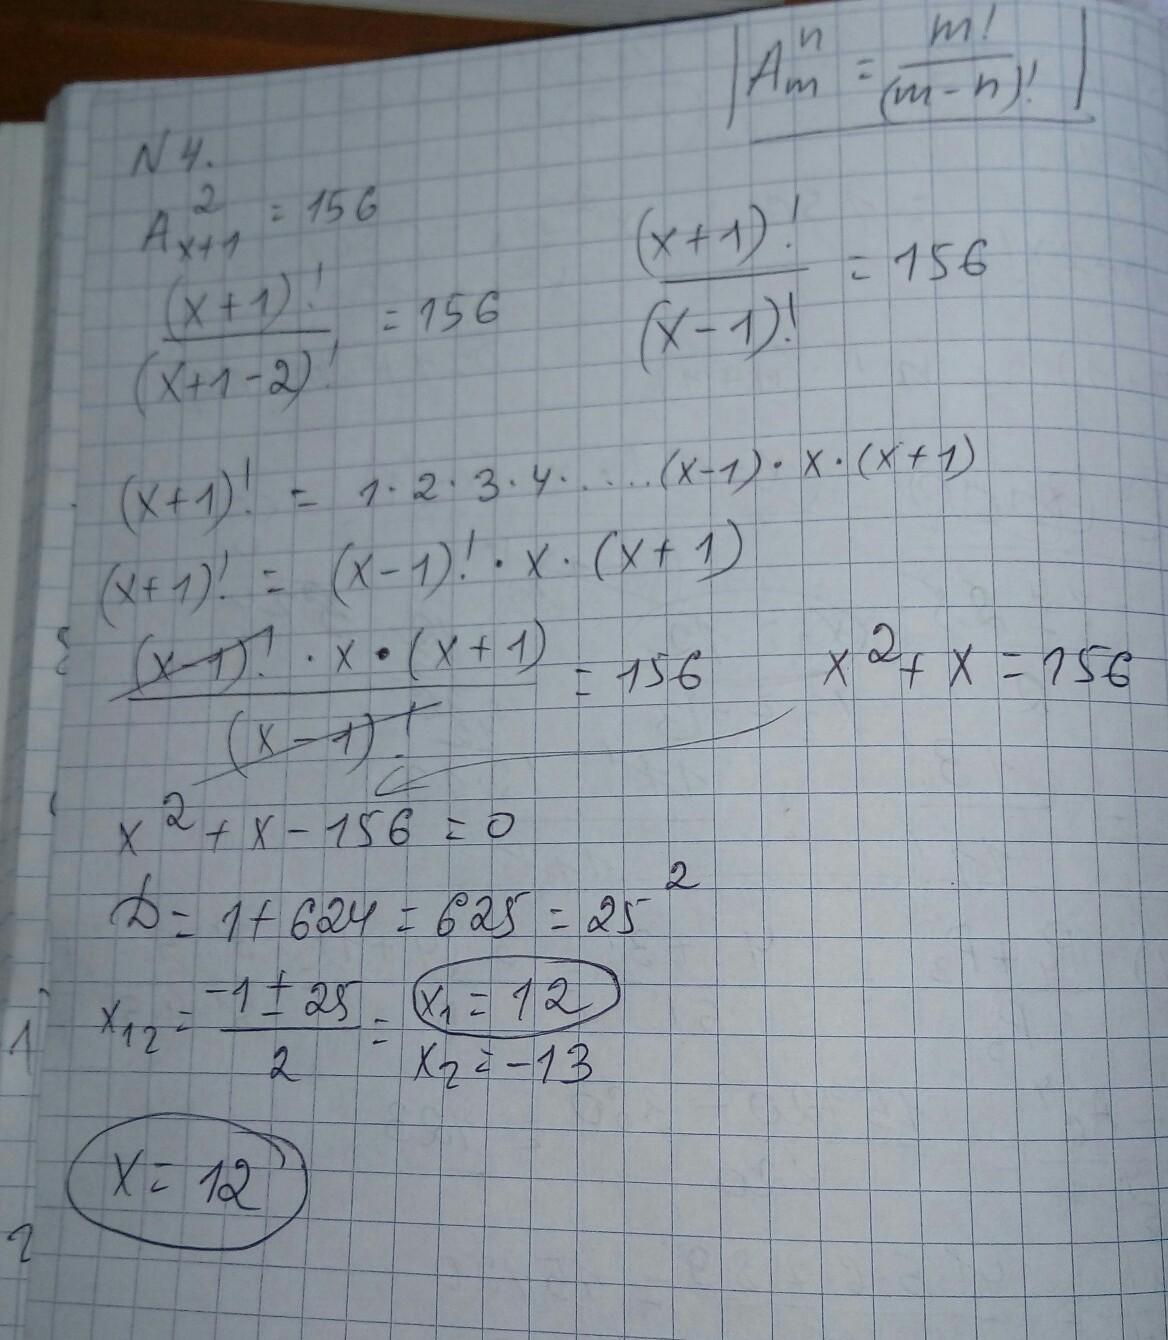 |A_m^n = m!/(m-n)!|
N4.
A_{x+1}^2 = 156
(x+1)!/(x+1-2)! = 156
(x+1)!/(x-1)! = 156
(x+1)! = 1·2·3·4·.....(x-1)·x·(x+1)
(x+1)! = (x-1)!·x·(x+1)
(x-1)!·x·(x+1)/(x-1)! = 156
x²+x=156
x²+x-156=0
D=1+624=625=25²
x₁₂=(-1±25)/2=
x₁=12
x₂=-13
x=12